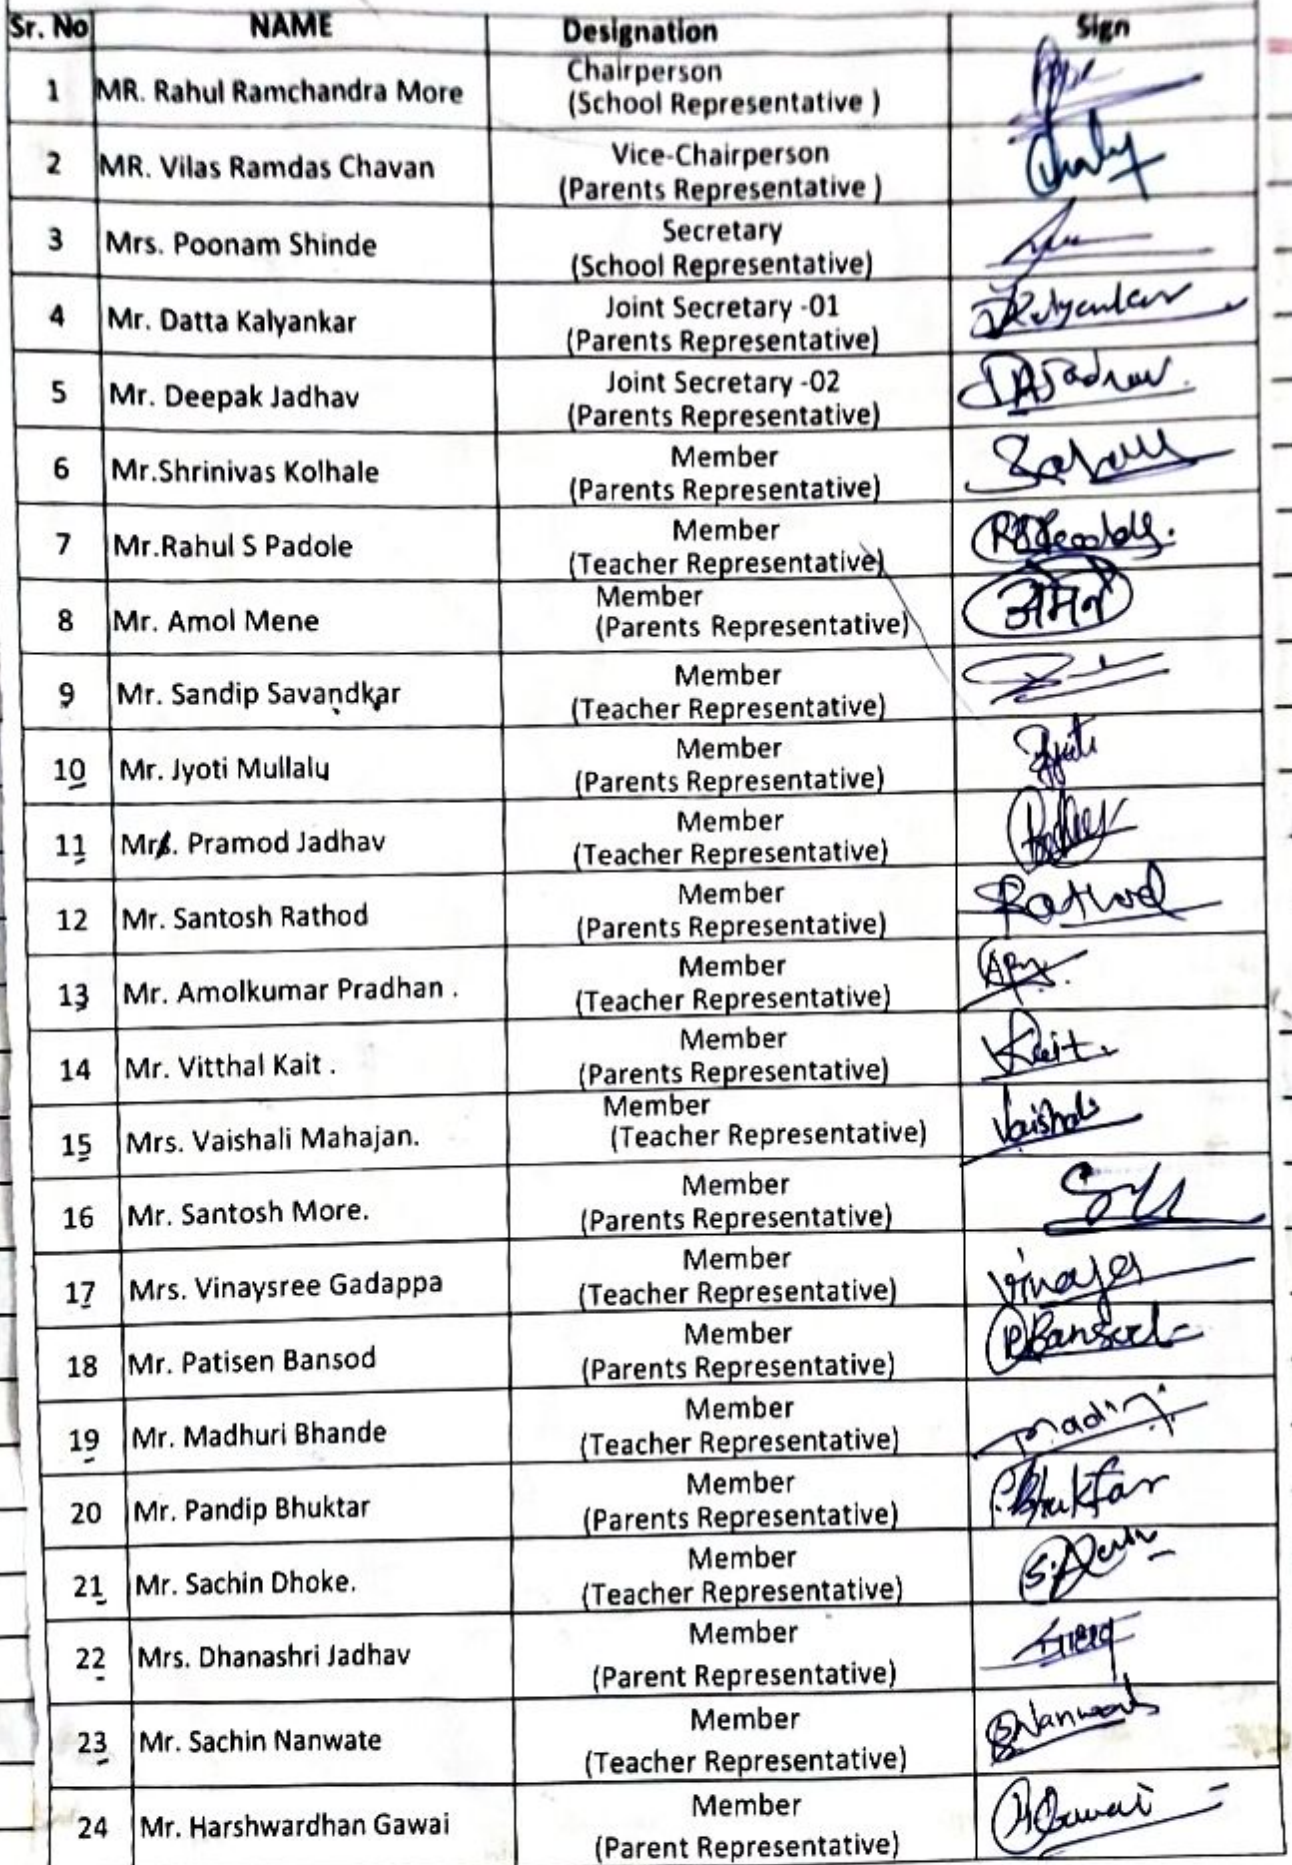 Sr. No NAME Designation Sign
1 MR. Rahul Ramchandra More Chairperson
(School Representative )
2 MR. Vilas Ramdas Chavan Vice-Chairperson
(Parents Representative )
3 Mrs. Poonam Shinde Secretary
(School Representative)
4 Mr. Datta Kalyankar Joint Secretary -01 Kalyankar
(Parents Representative)
5 Mr. Deepak Jadhav Joint Secretary -02 Jadhav
(Parents Representative)
6 Mr.Shrinivas Kolhale Member
(Parents Representative)
7 Mr.Rahul S Padole Member
(Teacher Representative)
8 Mr. Amol Mene Member
(Parents Representative)
9 Mr. Sandip Savandkar Member
(Teacher Representative)
10 Mr. Jyoti Mullalu Member Jyoti
(Parents Representative)
11 Mr. Pramod Jadhav Member
(Teacher Representative)
12 Mr. Santosh Rathod Member Rathod
(Parents Representative)
13 Mr. Amolkumar Pradhan . Member
(Teacher Representative)
14 Mr. Vitthal Kait . Member Kait
(Parents Representative)
15 Mrs. Vaishali Mahajan. Member Vaishali
(Teacher Representative)
16 Mr. Santosh More. Member
(Parents Representative)
17 Mrs. Vinaysree Gadappa Member
(Teacher Representative)
18 Mr. Patisen Bansod Member PBansod
(Parents Representative)
19 Mr. Madhuri Bhande Member
(Teacher Representative)
20 Mr. Pandip Bhuktar Member P.Bhuktar
(Parents Representative)
21 Mr. Sachin Dhoke. Member
(Teacher Representative)
22 Mrs. Dhanashri Jadhav Member
(Parent Representative)
23 Mr. Sachin Nanwate Member
(Teacher Representative)
24 Mr. Harshwardhan Gawai Member HGawai
(Parent Representative)